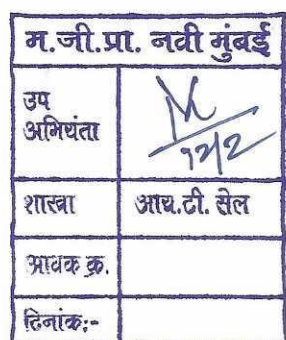 म.जी.प्रा. नवी मुंबई
उप
अभियंता
12/2
शाखा आय.टी. सेल
आवक क्र.
दिनांक:-